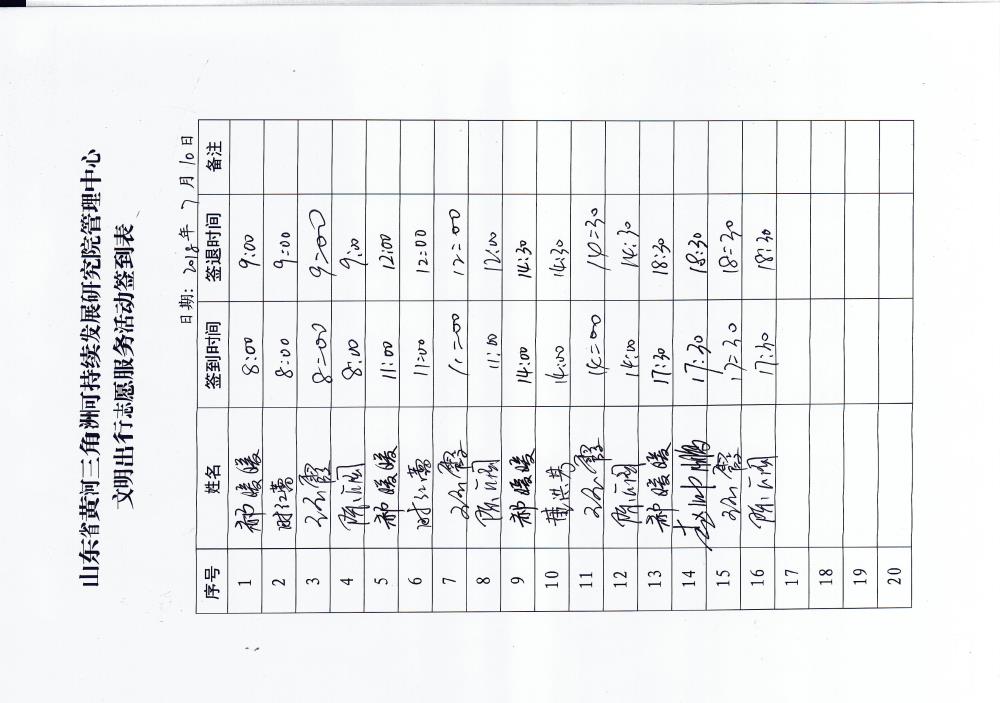 山东省黄河三角洲可持续发展研究院管理中心
文明出行志愿服务活动签到表
日期：2018年7月10日
序号 姓名 签到时间 签退时间 备注
1 郝暖暖 8:00 9:00
2 时红蕾 8:00 9:00
3 8=00 9=00
4 8:00 9:00
5 郝暖暖 11:00 12:00
6 11=00 12=00
7 11=00 12=00
8 11:00 12:00
9 郝暖暖 14:00 14:30
10 董洪芹 14:00 14:30
11 14=00 14=30
12 14:00 14:30
13 郝暖暖 17:30 18:30
14 17:30 18:30
15 17=30 18=30
16 17:30 18:30
17
18
19
20